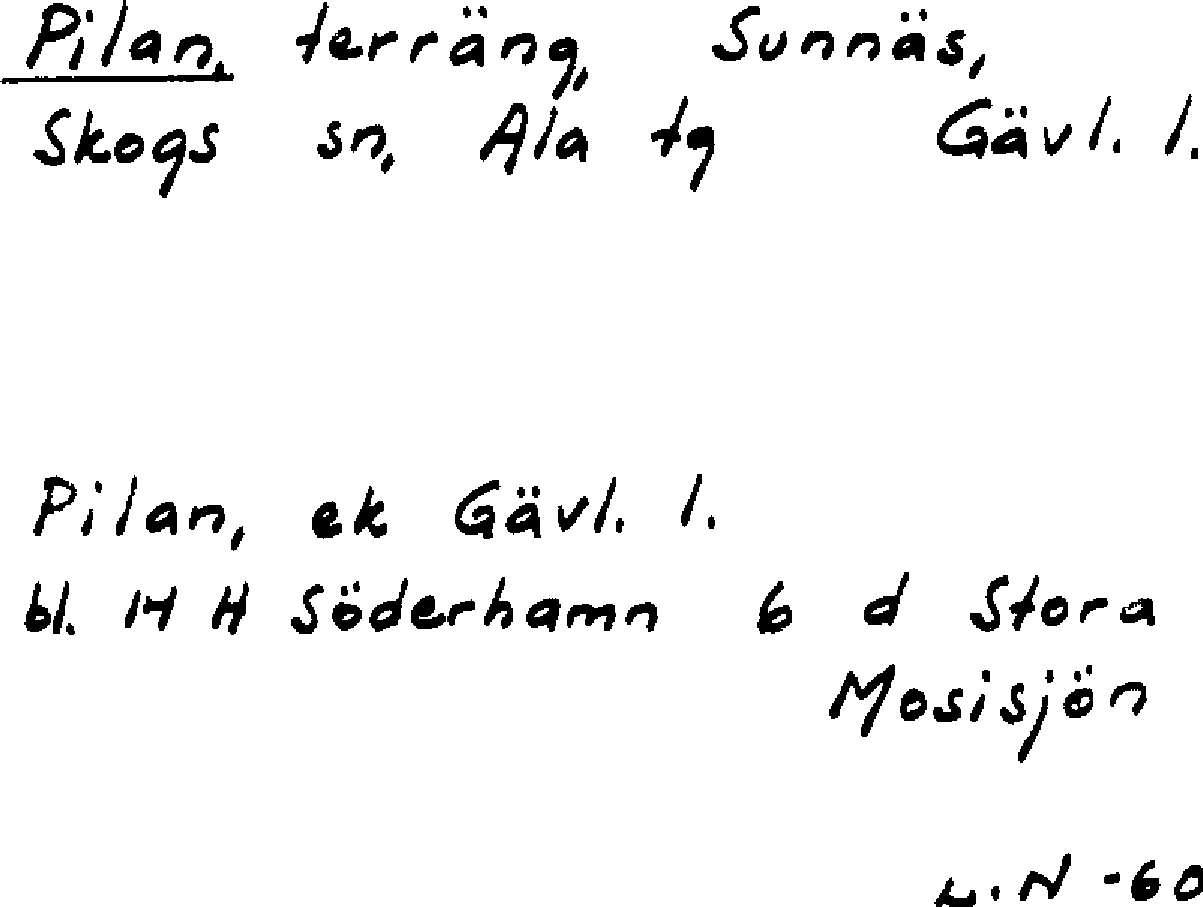 Pilan, terräng, Sunnäs,
Skogs sn, Ala tg Gävl. l.
Pilan, ek Gävl. l.
bl. 14 H Söderhamn 6 d Stora
Mosisjön
L. N -60